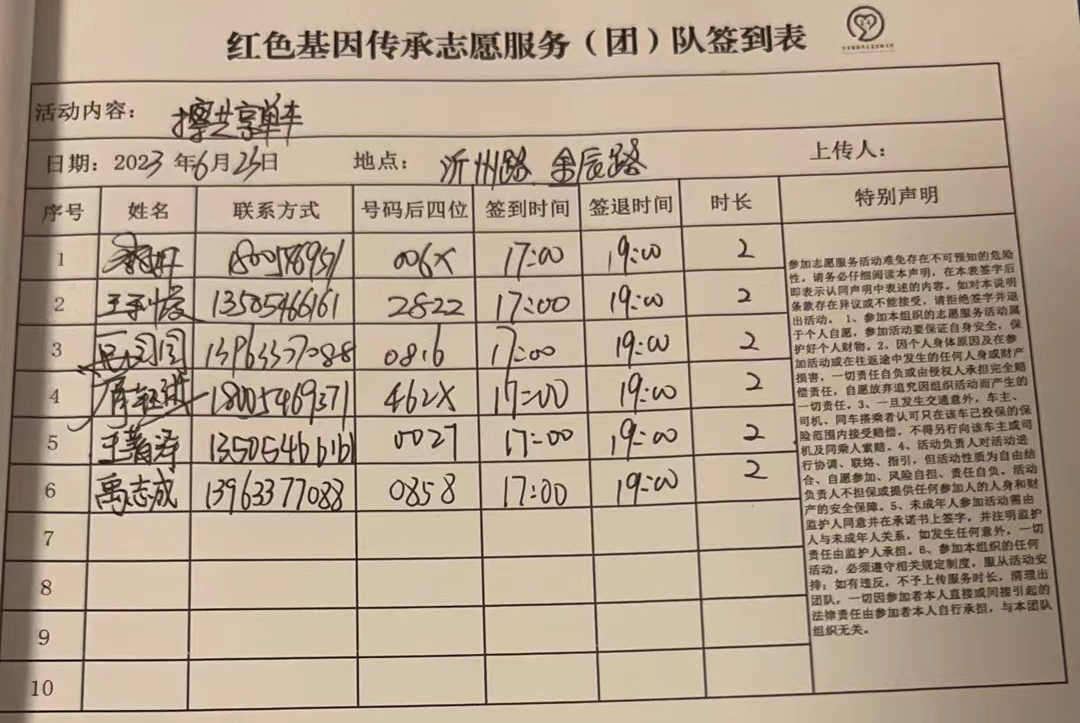 红色基因传承志愿服务（团）队签到表
活动内容： 擦共享单车
日期：2023 年6月25日 地点： 沂州路 金辰路 上传人：
序号 姓名 联系方式 号码后四位 签到时间 签退时间 时长 特别声明
1 006X 17:00 19:00 2
2 13505466161 2822 17:00 19:00 2
3 13963377088 0816 17:00 19:00 2
4 18005469371 462X 17:00 19:00 2
5 13505466161 0027 17:00 19:00 2
6 禹志成 13963377088 0858 17:00 19:00 2
7
8
9
10
参加志愿服务活动难免存在不可预知的危险
性。请务必仔细阅读本声明，在本表签字后
即表示认同声明中表述的内容。如对本说明
条款存在异议或不能接受，请拒绝签字并退
出活动。1、参加本组织的志愿服务活动属
于个人自愿，参加活动要保证自身安全，保
护好个人财物。2、因个人身体原因及在参
加活动或在往返途中发生的任何人身或财产
损害，一切责任自负或由侵权人承担完全赔
偿责任，自愿放弃追究因组织活动而产生的
一切责任。3、一旦发生交通意外，车主、
司机、同车搭乘者认可只在该车已投保的保
险范围内接受赔偿，不得另行向该车主或司
机及同乘人索赔。4、活动负责人对活动进
行协调、联络、指引，但活动性质为自由结
合、自愿参加、风险自担、责任自负。活动
负责人不担保或提供任何参加人的人身和财
产的安全保障。5、未成年人参加活动需由
监护人同意并在承诺书上签字，并注明监护
人与未成年人关系，如发生任何意外，一切
责任由监护人承担。6、参加本组织的任何
活动，必须遵守相关规定制度，服从活动安
排；如有违反，不予上传服务时长，清理出
团队，一切因参加者本人直接或间接引起的
法律责任由参加者本人自行承担，与本团队
组织无关。